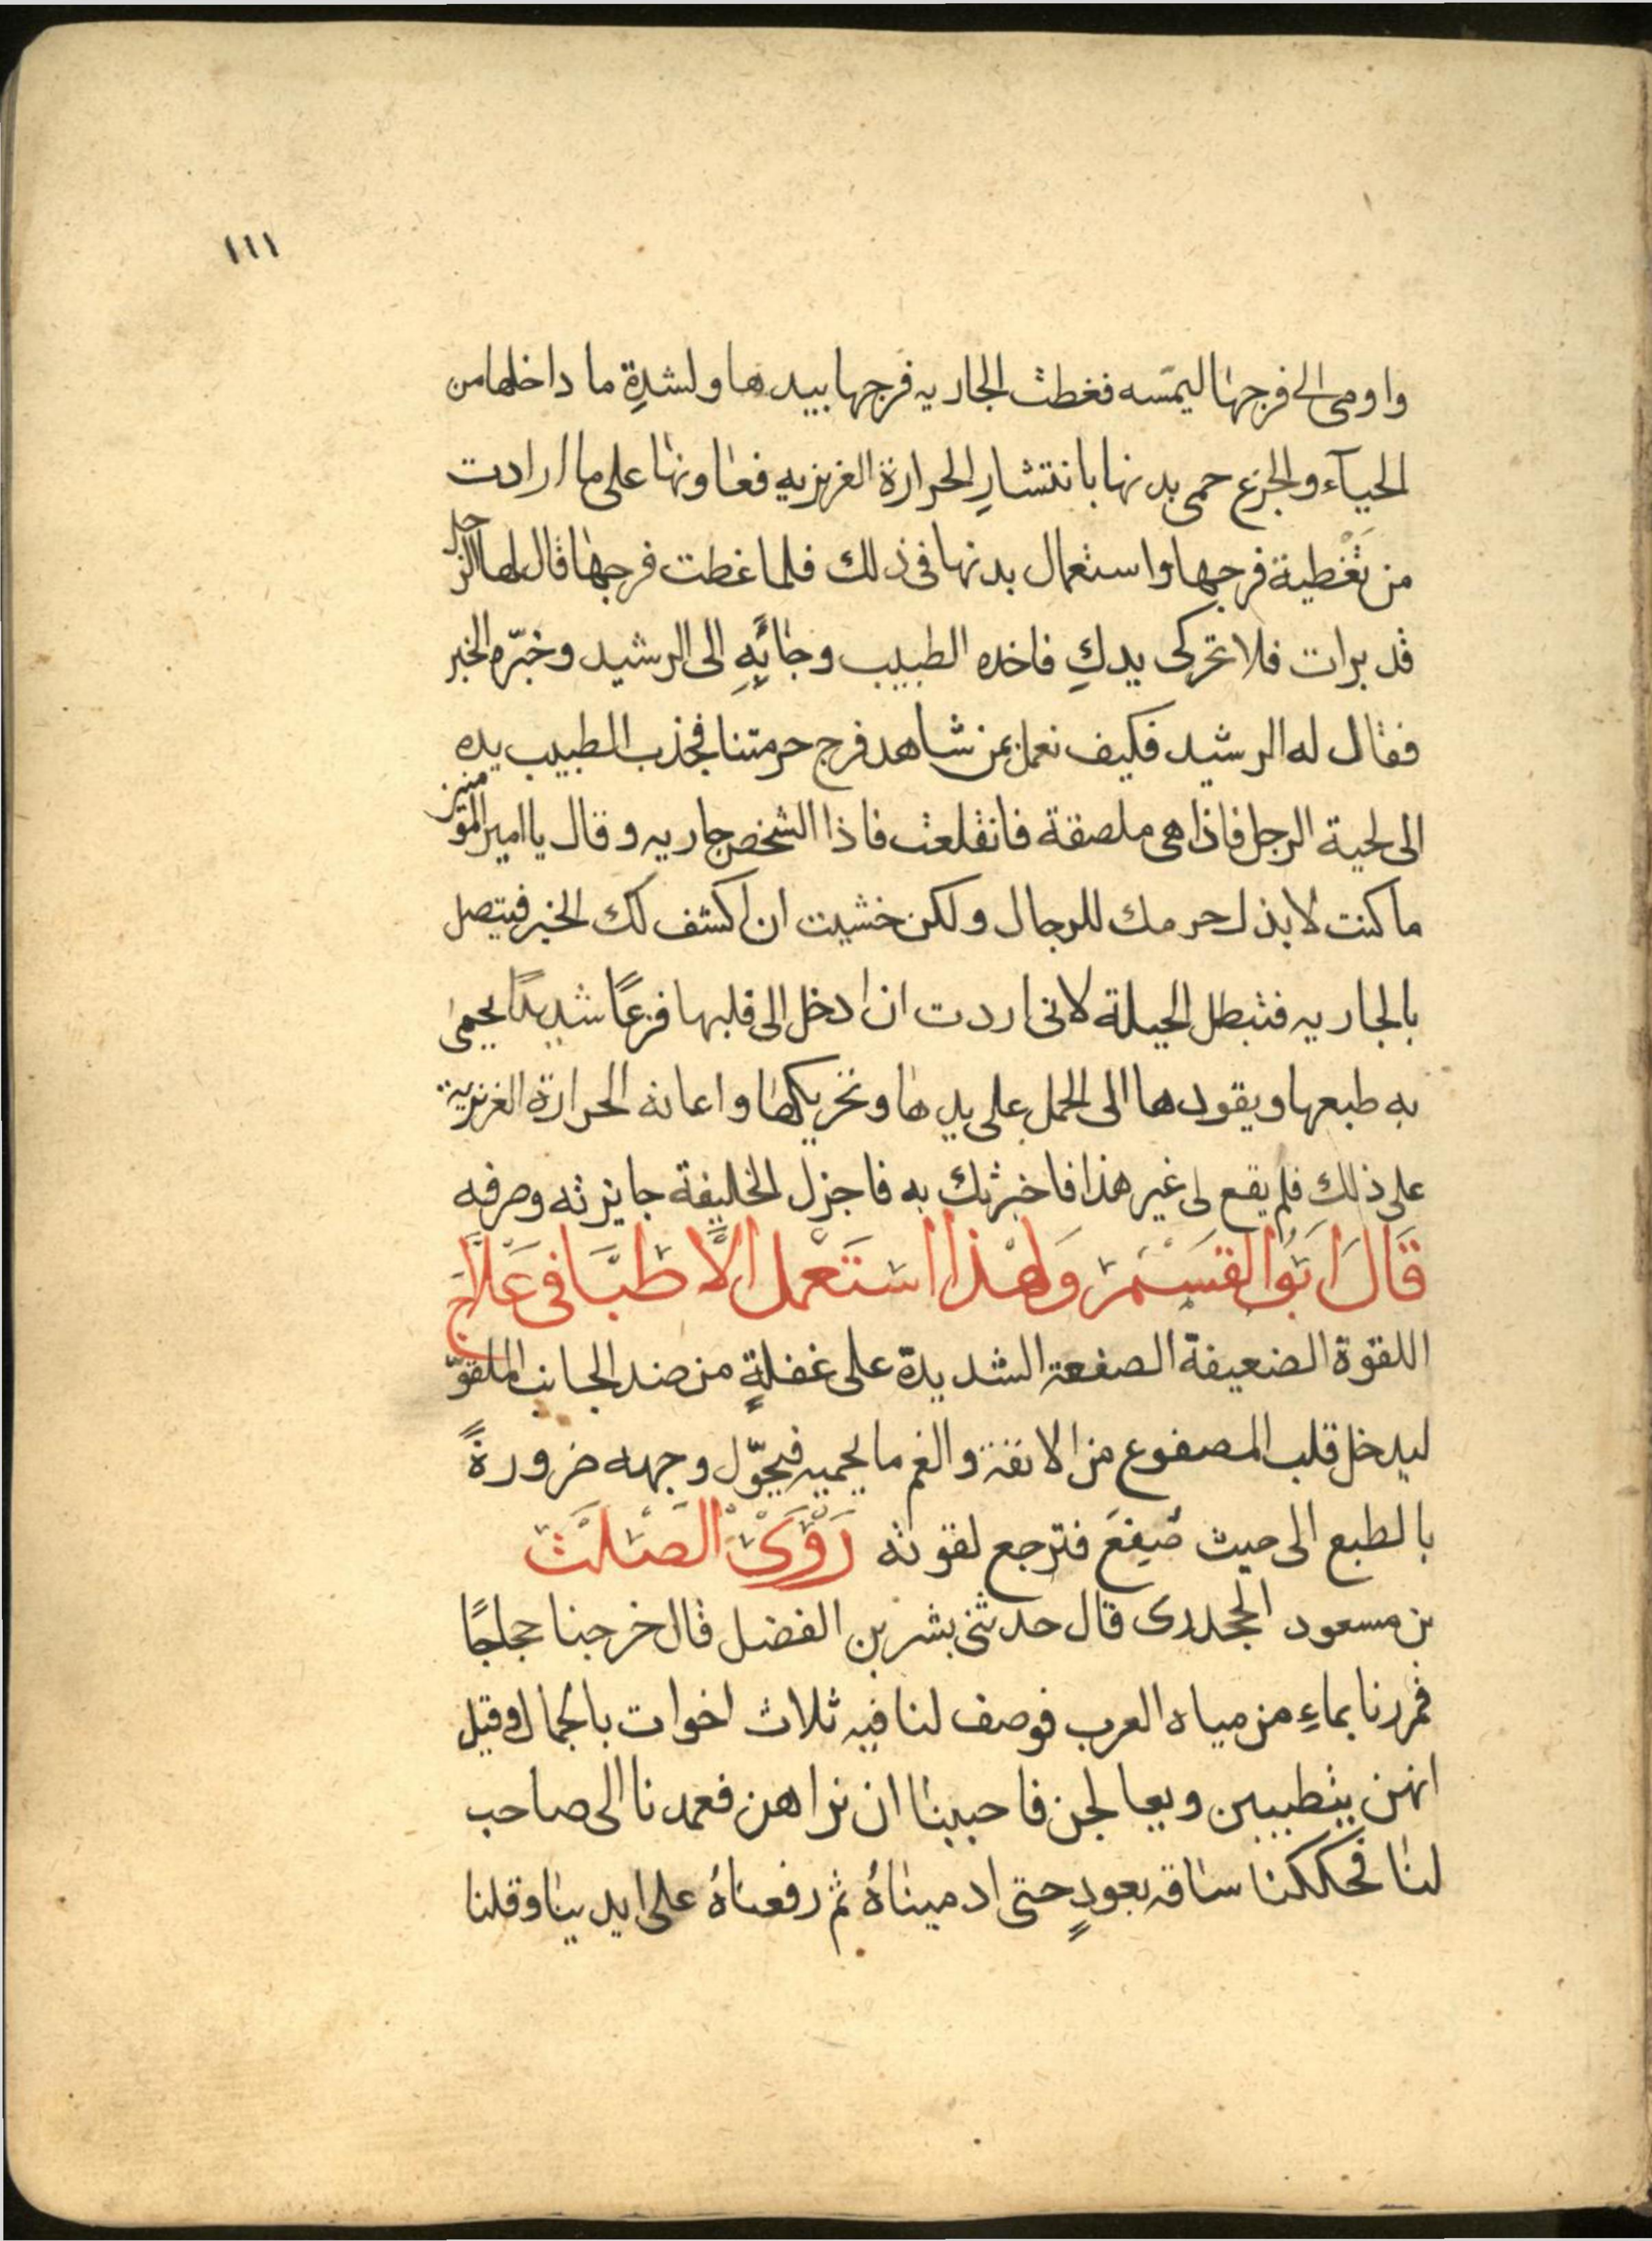 ١١١
واومى الى فرجها اليمسه فغطت الجاريه فرجها بيدها ولشدةِ ما داخلها من
الحيآء والجزع حمى بدنها بانتشارِ الحرارة الغريزيه فعاونها على ما ارادت
من تغطية فرجها واستعمال بدنها فى ذلك فلما غطت فرجها قال لها الرجل
قد برات فلا تحركى يدكِ فاخده الطبيب وجائَ بِهِ الى الرشيد وخبّره الخبر
فقال له الرشيد فكيف نعمل بمن شاهد فرج حرمتنا فجذب الطبيب يده
الى لحية الرجل فاذا هى ملصقة فانقلعت فاذا الشخص جاريه وقال يا امير المومنين
ما كنت لابذل حرمك للرجال ولكن خشيت ان اكشف لك الخبر فيتصل
بالجاريه فتبطل الحيلة لانى اردت ان ادخل الى قلبها فزعًا شديدًا يحمى
به طبعها ويقودها الى الحمل على يدها وتحريكها واعانه الحرارة الغريزية
على ذلك فلم يقع لى غير هذا فاخبرتك به فاجزل الخليفة جايزته وصرفه
قَالَ ابَوُ القسَمْ وَلهْذا اسْتَعْمل الاَّطبَّا فى عَلاَج
اللقوة الضعيفة الصفعة الشديدة على غفلةٍ من ضد الجانب الملقوّ
ليدخل قلب المصفوع من الانفة والغم ما يحميه فيحوّل وجهه ضرورةً
بالطبع الى حيث صُفِعَ فترجع لقوته رَوْىَ الصَلَتْ
بن مسعود الجحدرى قال حدثنى بشر بن الفضل قال خرجنا حجاجًا
فمررنا بماءٍ من مياه العرب فوصف لنا فيه ثلاث اخوات بالجمال وقيل
انهن يتطببين ويعالجن فاحببنا ان نراهن فعمدنا الى صاحب
لنا فحككنا ساقه بعودٍ حتى ادميناهُ ثم رفعناهُ على ايدينا وقلنا